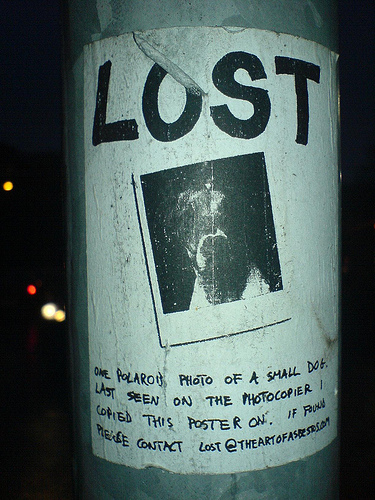 LOST
ONE POLAROID PHOTO OF A SMALL DOG.
LAST SEEN ON THE PHOTOCOPIER I
COPIED THIS POSTER ON. IF FOUND
PLEASE CONTACT LOST@THEARTOFASBESTOS.COM